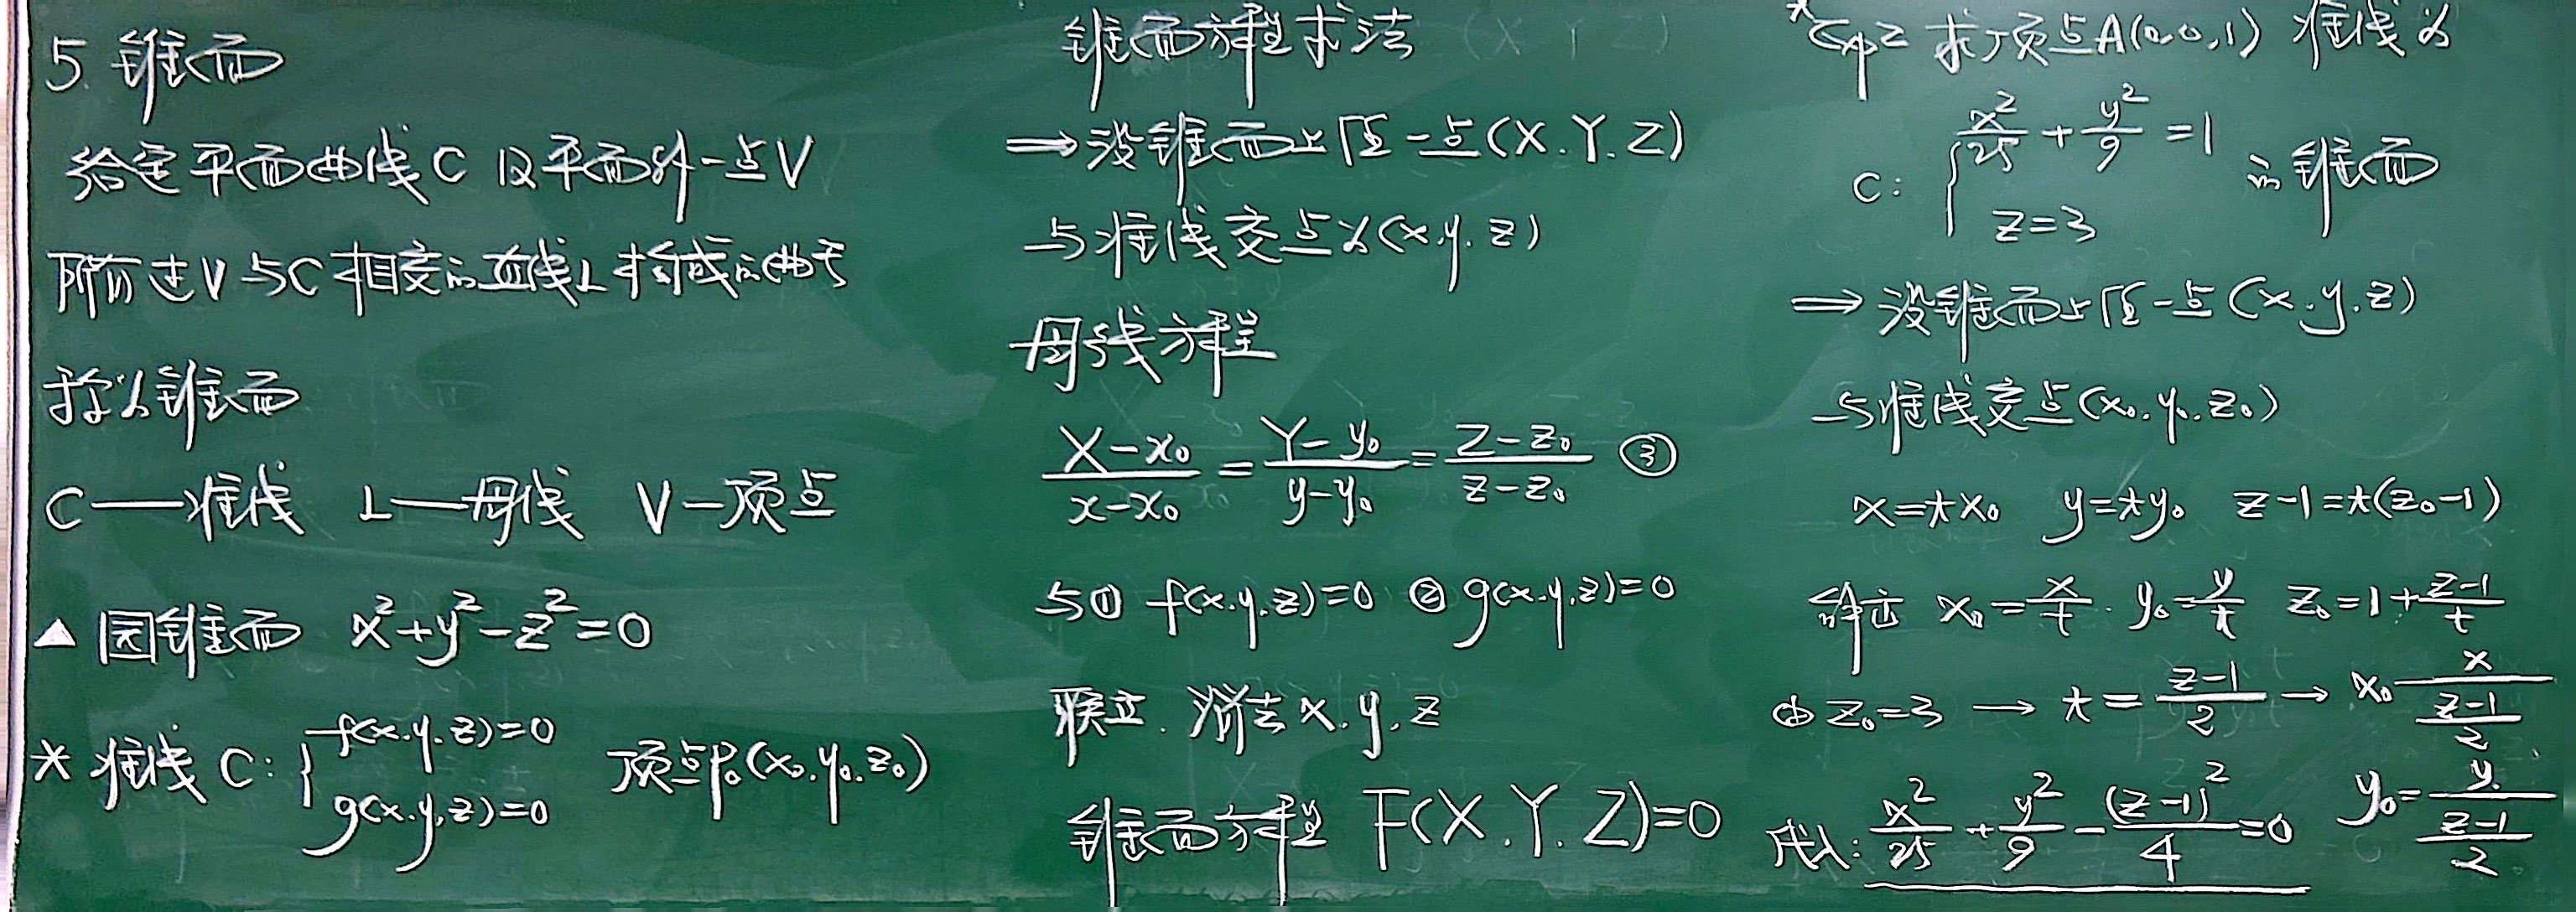 5. 锥面
给定平面曲线C 及平面外一点V
所有过V与C相交的直线L构成的曲面
称为锥面
C—准线 L—母线 V—顶点
▲ 园锥面 x²+y²-z²=0
* 准线 C: { f(x.y.z)=0 顶点P₀(x₀.y₀.z₀)
g(x.y.z)=0
锥面方程求法
⇒ 设锥面上任一点(X.Y.Z)
与准线交点为(x.y.z)
母线方程
(X-x₀)/(x-x₀) = (Y-y₀)/(y-y₀) = (Z-z₀)/(z-z₀) ③
与① f(x.y.z)=0 ② g(x.y.z)=0
联立. 消去x.y.z
锥面方程 F(X.Y.Z)=0
* Exp2 求顶点A(0,0,1) 准线为
C: { x²/25 + y²/9 = 1 的锥面
z=3
⇒ 设锥面上任一点(x.y.z)
与准线交点(x₀.y₀.z₀)
x=tx₀ y=ty₀ z-1=t(z₀-1)
x₀=x/t. y₀=y/t z₀=1+(z-1)/t
由 z₀=3 → t=(z-1)/2 → x₀=x/((z-1)/2)
y₀=y/((z-1)/2)
代入: x²/25 + y²/9 - (z-1)²/4 = 0